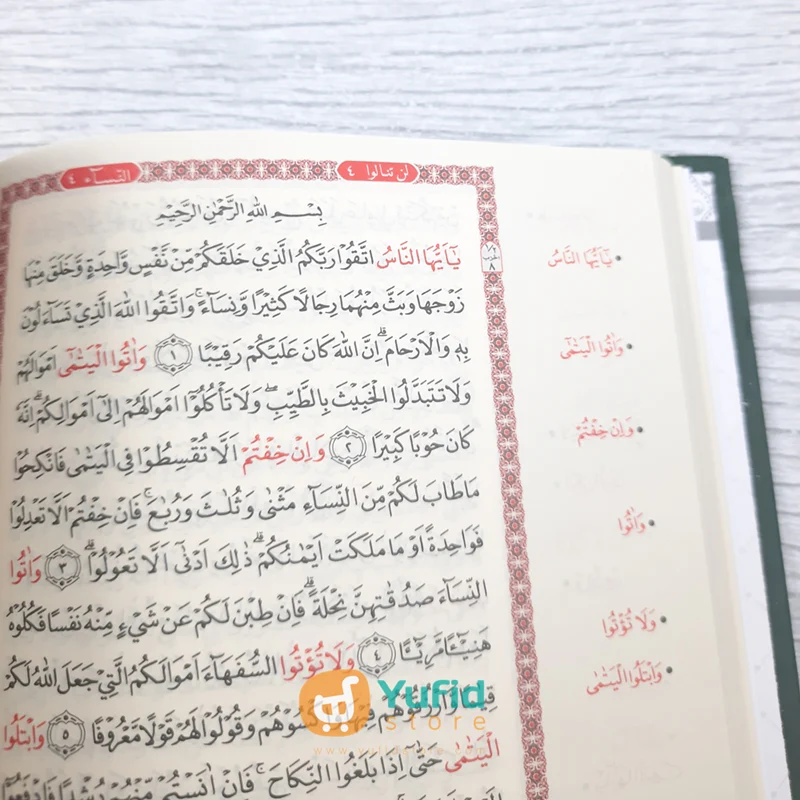 لن تنالوا ٤
النسآء ٤
بِسْمِ اللهِ الرَّحْمٰنِ الرَّحِيْمِ
يٰٓاَيُّهَا النَّاسُ اتَّقُوْا رَبَّكُمُ الَّذِيْ خَلَقَكُمْ مِّنْ نَّفْسٍ وَّاحِدَةٍ وَّخَلَقَ مِنْهَا
زَوْجَهَا وَبَثَّ مِنْهُمَا رِجَالًا كَثِيْرًا وَّنِسَاۤءً ۚ وَاتَّقُوا اللهَ الَّذِيْ تَسَاۤءَلُوْنَ
بِهٖ وَالْاَرْحَامَ ۗ اِنَّ اللهَ كَانَ عَلَيْكُمْ رَقِيْبًا ١ وَاٰتُوا الْيَتٰمٰٓى اَمْوَالَهُمْ
وَلَا تَتَبَدَّلُوا الْخَبِيْثَ بِالطَّيِّبِ ۖ وَلَا تَأْكُلُوْٓا اَمْوَالَهُمْ اِلٰٓى اَمْوَالِكُمْ ۗ اِنَّهٗ
كَانَ حُوْبًا كَبِيْرًا ٢ وَاِنْ خِفْتُمْ اَلَّا تُقْسِطُوْا فِى الْيَتٰمٰى فَانْكِحُوْا
مَا طَابَ لَكُمْ مِّنَ النِّسَاۤءِ مَثْنٰى وَثُلٰثَ وَرُبٰعَ ۚ فَاِنْ خِفْتُمْ اَلَّا تَعْدِلُوْا
فَوَاحِدَةً اَوْ مَا مَلَكَتْ اَيْمَانُكُمْ ۗ ذٰلِكَ اَدْنٰٓى اَلَّا تَعُوْلُوْا ۗ ٣ وَاٰتُوا
النِّسَاۤءَ صَدُقٰتِهِنَّ نِحْلَةً ۗ فَاِنْ طِبْنَ لَكُمْ عَنْ شَيْءٍ مِّنْهُ نَفْسًا فَكُلُوْهُ
هَنِيْۤـًٔا مَّرِيْۤـًٔا ٤ وَلَا تُؤْتُوا السُّفَهَاۤءَ اَمْوَالَكُمُ الَّتِيْ جَعَلَ اللهُ لَكُمْ
وَقُوْلُوْا لَهُمْ قَوْلًا مَّعْرُوْفًا ٥ وَابْتَلُوا
الْيَتٰمٰى حَتّٰىٓ اِذَا بَلَغُوا النِّكَاحَ ۚ فَاِنْ اٰنَسْتُمْ مِّنْهُمْ رُشْدًا فَادْفَعُوْٓا
يٰٓاَيُّهَا النَّاسُ
وَاٰتُوا الْيَتٰمٰٓى
وَاِنْ خِفْتُمْ
وَاٰتُوا
وَلَا تُؤْتُوا
وَابْتَلُوا الْيَتٰمٰى
Yufid
store